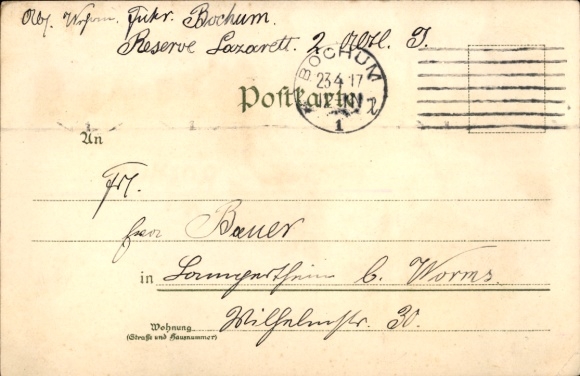 Bochum.
Reserve Lazarett. 2. Abtl. I.
BOCHUM
23.4.17
1
Postkarte
An
Frl.
Bauer
in Lampertheim b. Worms.
Wohnung Wilhelmstr. 30.
(Straße und Hausnummer)